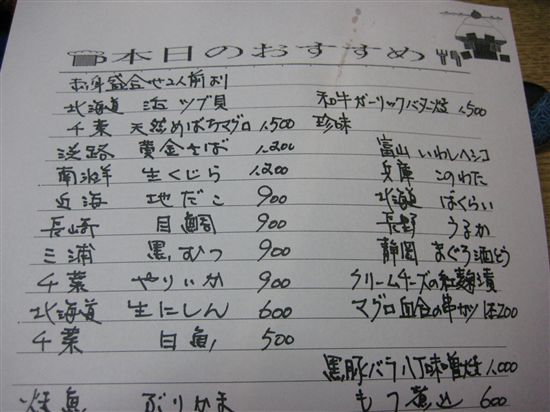 本日のおすすめ
お刺身盛合せ2人前より
北海道 活ツブ貝
千葉 天然めばちマグロ 1,500
淡路 黄金さば 1,200
南氷洋 生くじら 1,200
近海 地だこ 900
長崎 目鯛 900
三浦 黒むつ 900
千葉 やりいか 900
北海道 生にしん 600
千葉 白魚 500
焼魚 ぶりかま
和牛ガーリックバター焼 1,500
珍味
富山 いわしヘシコ
兵庫 このわた
北海道 ばくらい
長野 うるか
静岡 まぐろ酒とう
クリームチーズの紅麹漬
マグロ血合の串カツ 1本200
黒豚バラ八丁味噌焼 1,000
もつ煮込 600